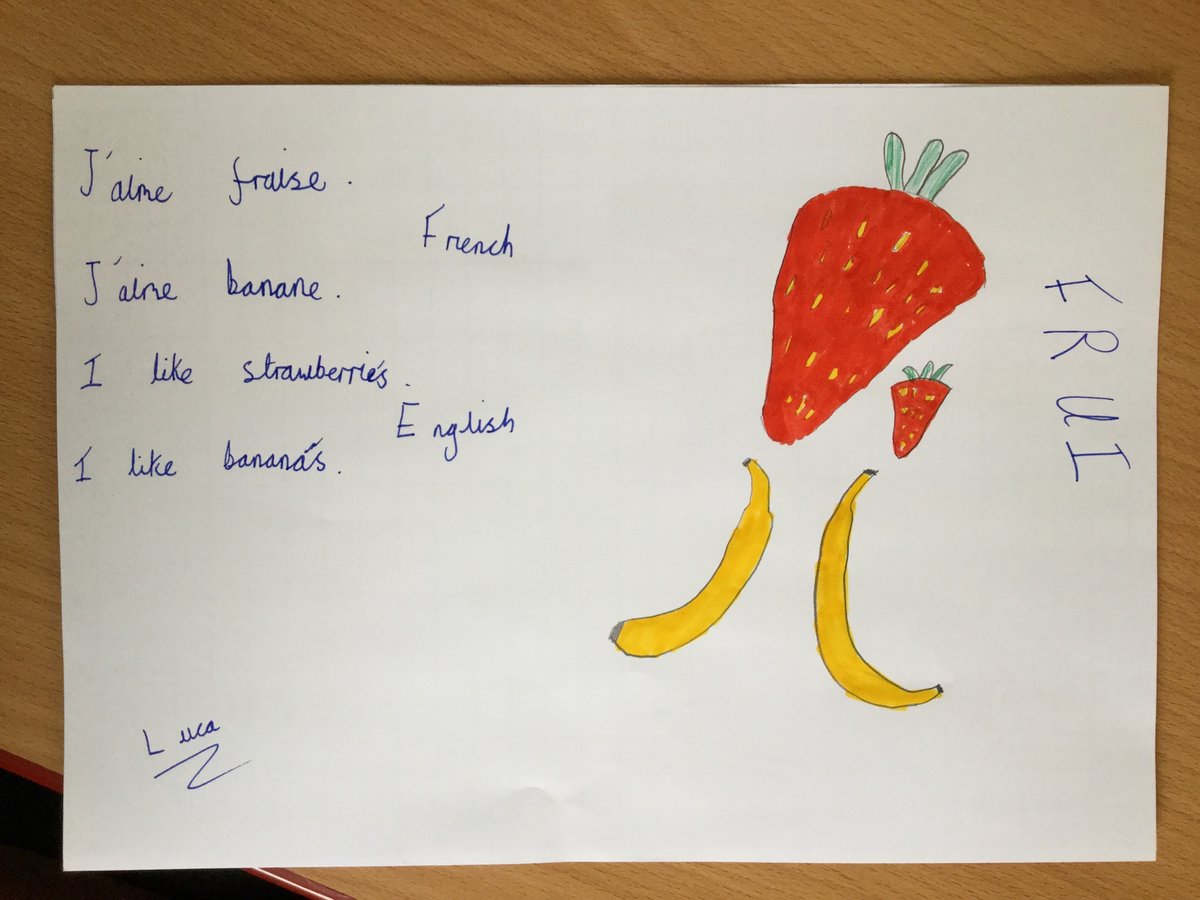 J'aime fraise.
French
J'aime banane.
I like strawberrie's.
English
I like banana's.
Luca
FRUI